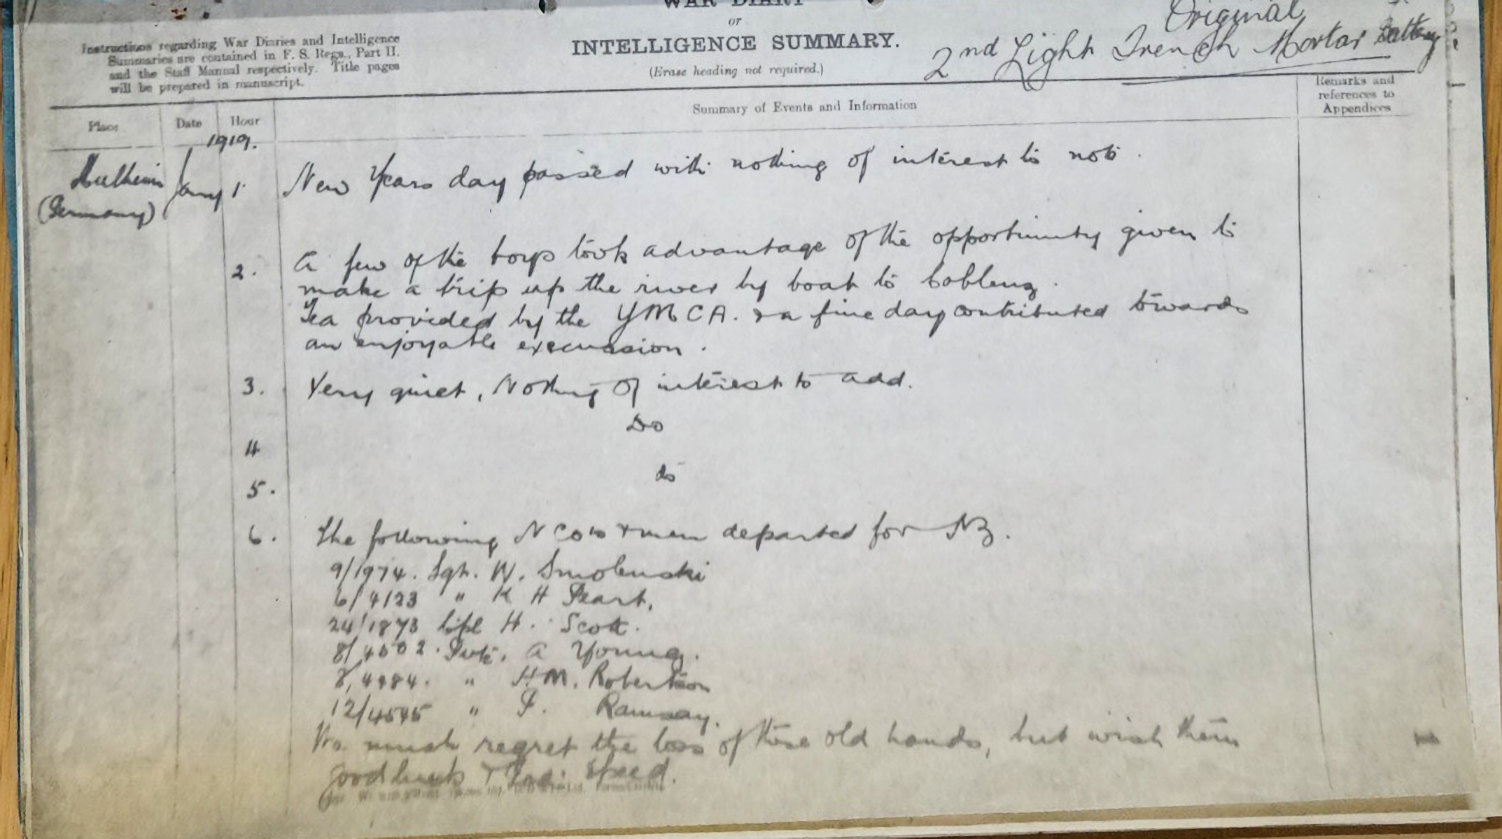 WAR DIARY
or
INTELLIGENCE SUMMARY.
(Erase heading not required.)
Original
2nd Light Trench Mortar Battery
Instructions regarding War Diaries and Intelligence
Summaries are contained in F. S. Regs., Part II.
and the Staff Manual respectively. Title pages
will be prepared in manuscript.
Place Date Hour Summary of Events and Information
Remarks and
references to
Appendices
1919.
Mulheim Jany 1. New Years day passed with nothing of interest to note.
(Germany)
2. A few of the boys took advantage of the opportunity given to
make a trip up the river by boat to Coblenz.
Tea provided by the YMCA. & a fine day contributed towards
an enjoyable excurssion.
3. Very quiet, Nothing of interest to add.
4 Do
5. do
6. The following NCOs & men departed for NZ.
9/1974. Sgt. W. Smolenski
6/4123 " K H Peart.
24/1873 Cpl H. Scott.
8/4502. Pvte. A Young.
8/4984. " H.M. Robertson
12/4545 " F. Ramsay.
We much regret the loss of these old hands, but wish them
good luck & God Speed.